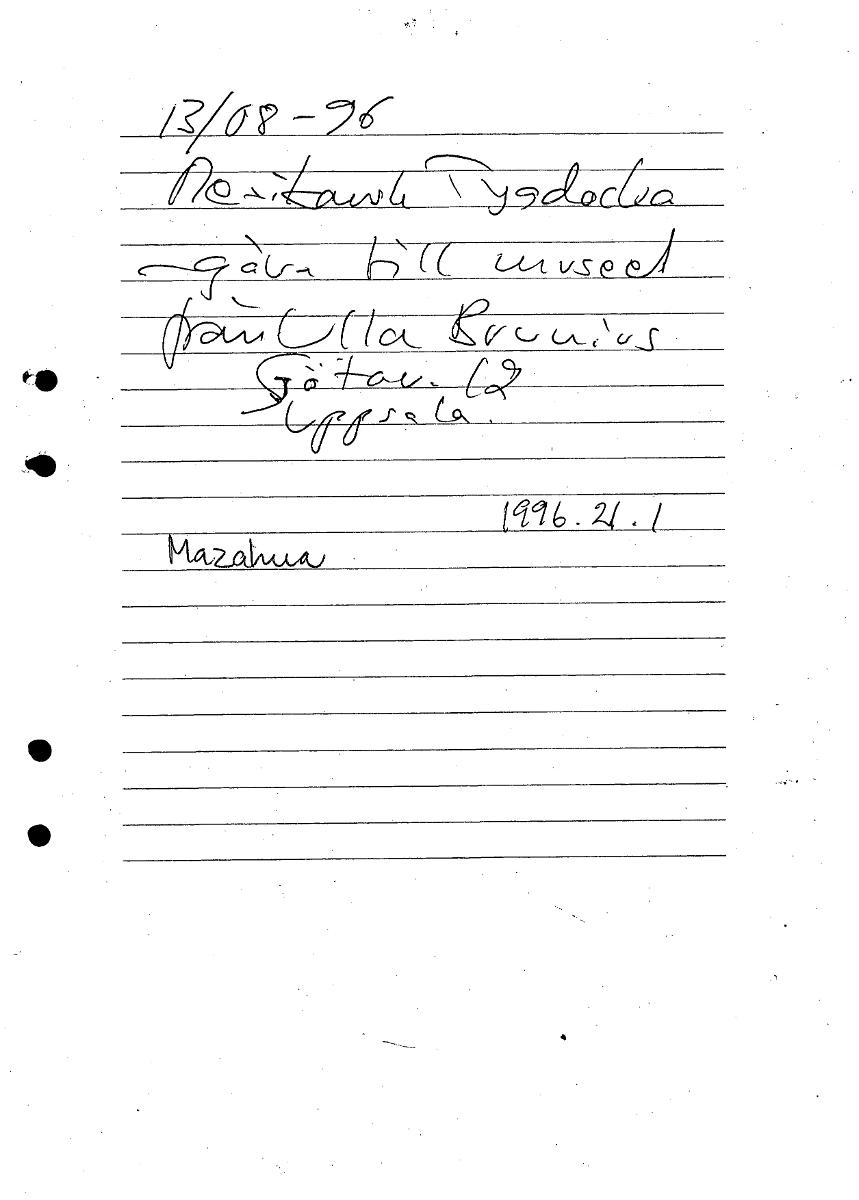 13/08-96
Mexikansk Tygdocka
- gåva till museet
från Ulla Brunius
Götav. 12
Uppsala.
1996.21.1
Mazahua